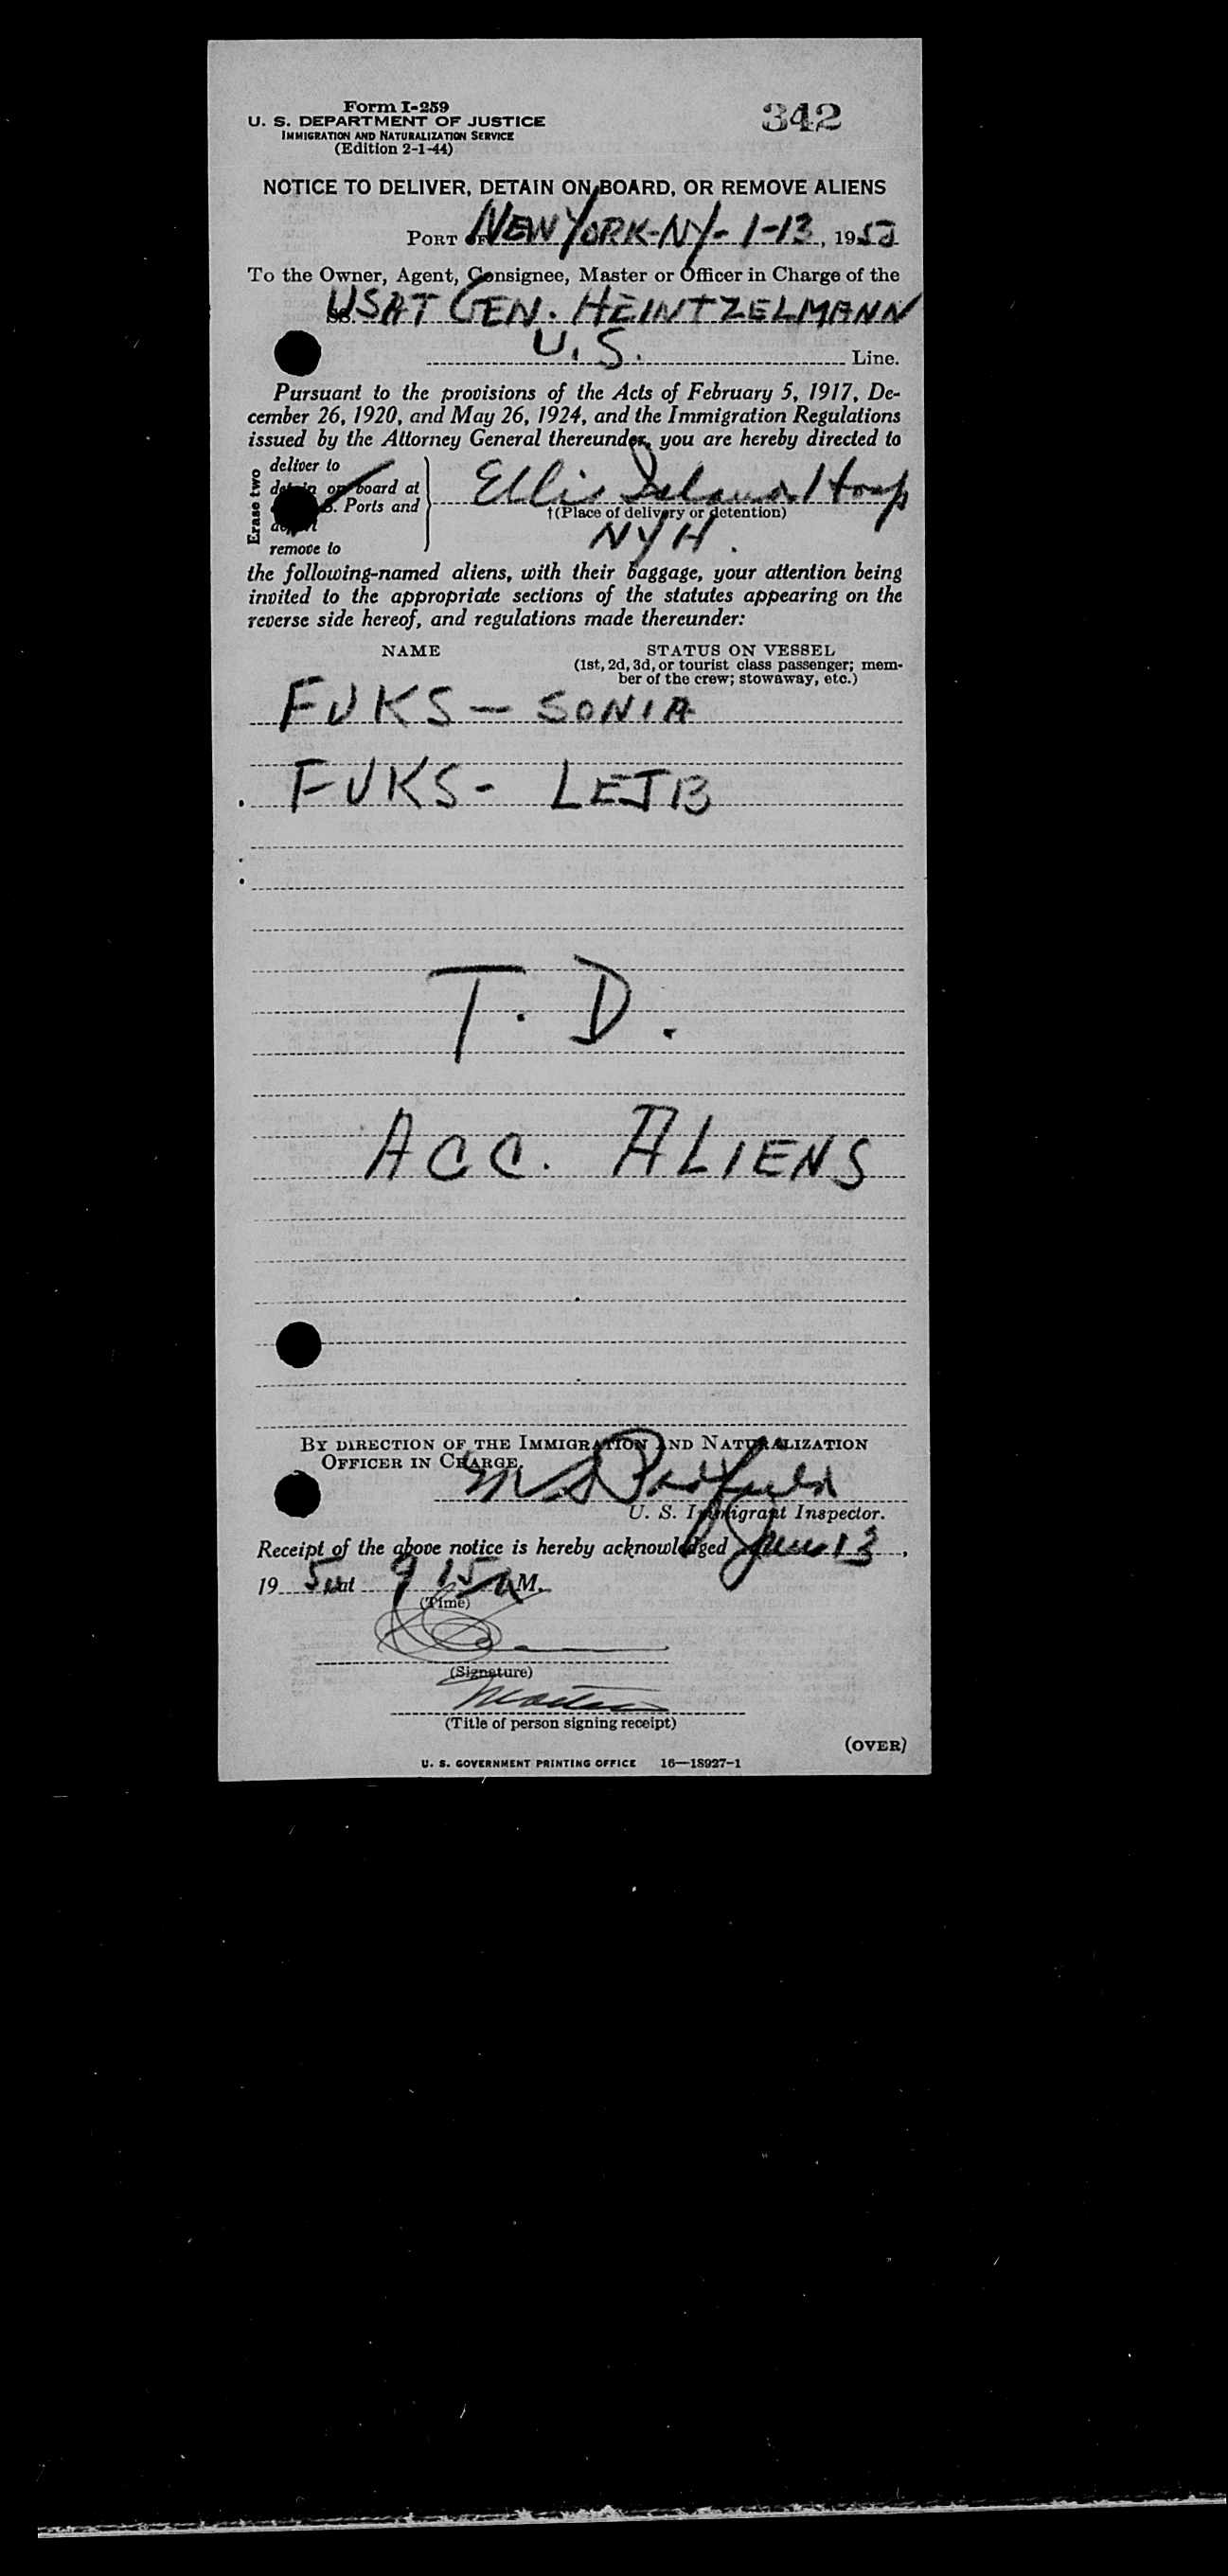 Form I-259
U. S. DEPARTMENT OF JUSTICE
IMMIGRATION AND NATURALIZATION SERVICE
(Edition 2-1-44)
342
NOTICE TO DELIVER, DETAIN ON BOARD, OR REMOVE ALIENS
PORT OF NEW YORK-NY- 1-13, 1950
To the Owner, Agent, Consignee, Master or Officer in Charge of the
SS. USAT GEN. HEINTZELMANN
U.S. Line.
Pursuant to the provisions of the Acts of February 5, 1917, De-
cember 26, 1920, and May 26, 1924, and the Immigration Regulations
issued by the Attorney General thereunder, you are hereby directed to
Erase two
deliver to
detain on board at
Ports and
remove to
Ellis Island Hosp
†(Place of delivery or detention)
NYH.
the following-named aliens, with their baggage, your attention being
invited to the appropriate sections of the statutes appearing on the
reverse side hereof, and regulations made thereunder:
NAME STATUS ON VESSEL
(1st, 2d, 3d, or tourist class passenger; mem-
ber of the crew; stowaway, etc.)
FUKS - SONIA
FUKS - LEJB
T. D.
ACC. ALIENS
BY DIRECTION OF THE IMMIGRATION AND NATURALIZATION
OFFICER IN CHARGE.
U. S. Immigrant Inspector.
Receipt of the above notice is hereby acknowledged Jan 13,
1950 at 9 15 A M.
(Time)
(Signature)
Master
(Title of person signing receipt)
(OVER)
U. S. GOVERNMENT PRINTING OFFICE 16—18927-1